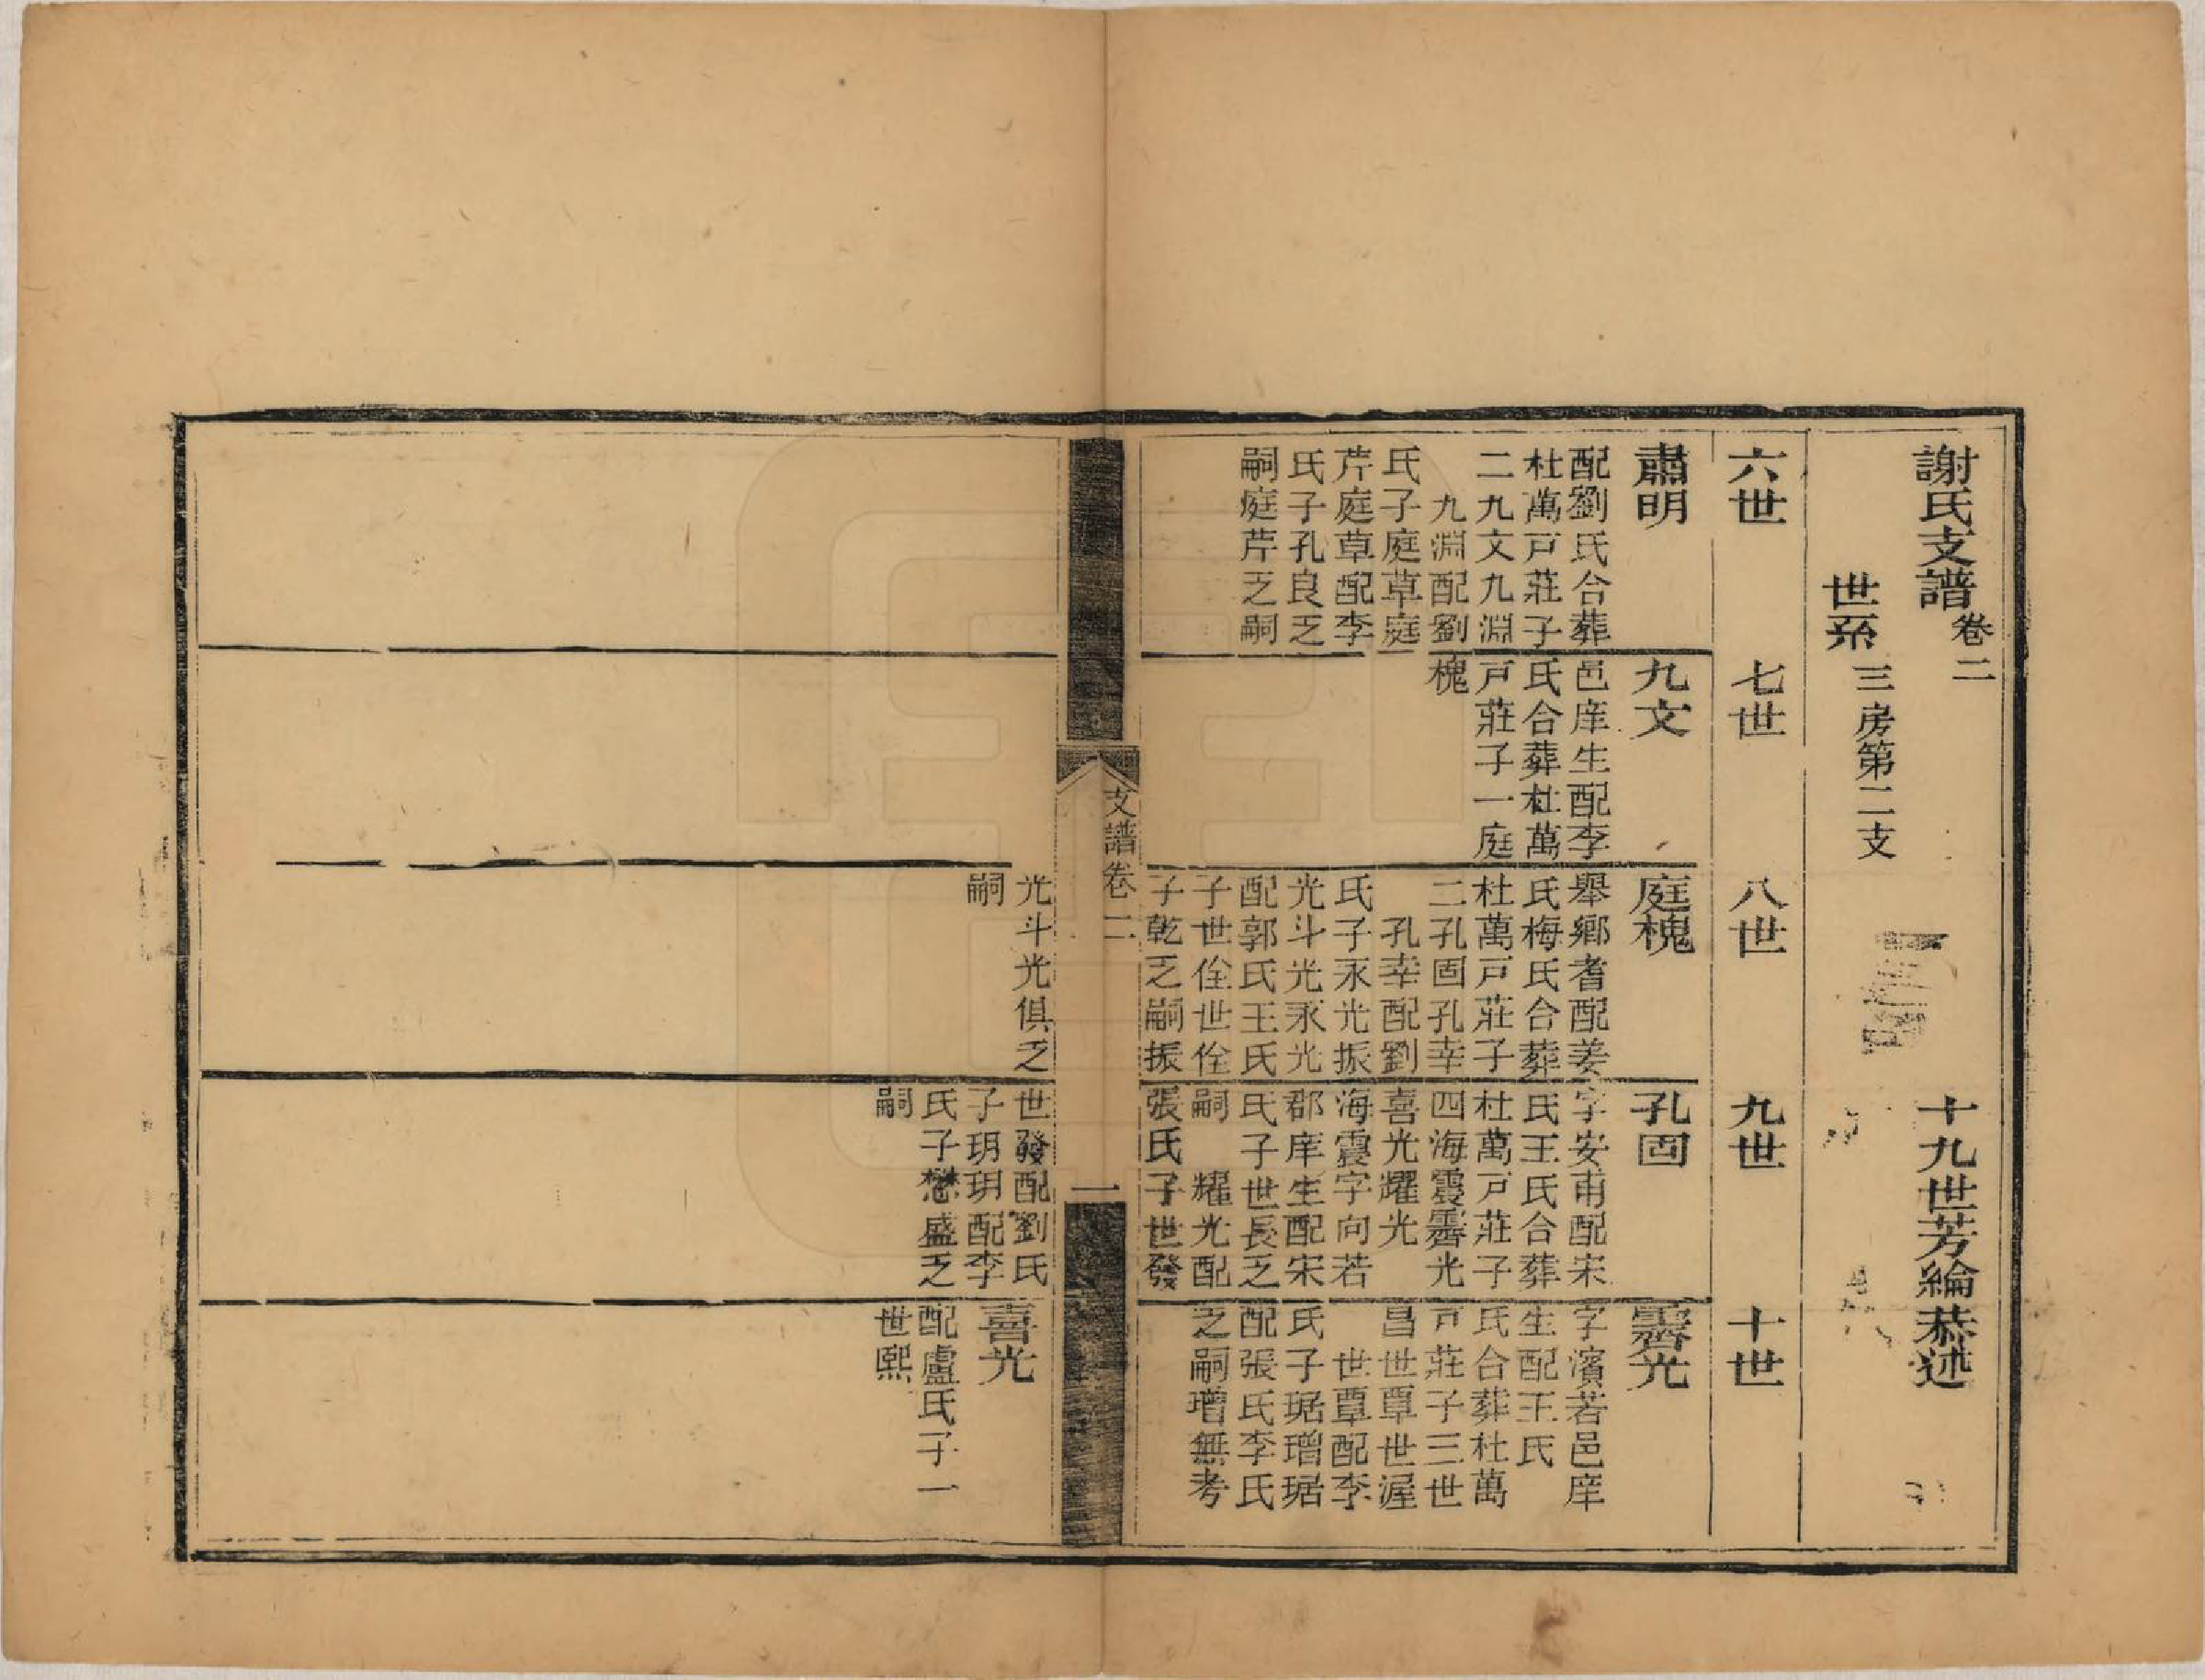 謝氏支譜卷二
十九世芳綸恭述
世系三房第二支
六世
七世
八世
九世
十世
肅明
配劉氏合葬
杜萬戸莊子
二九文九淵
九淵配劉
氏子庭草庭
芹庭草配李
氏子孔良乏
嗣庭芹乏嗣
九文
邑庠生配李
氏合葬杜萬
戸莊子一庭
槐
庭槐
舉鄉耆配姜
氏梅氏合葬
杜萬戸莊子
二孔固孔幸
孔幸配劉
氏子永光振
光斗光永光
配郭氏王氏
子世佺世佺
子乾乏嗣振
孔固
字安甫配宋
氏王氏合葬
杜萬戸莊子
四海震霽光
喜光耀光
海震字向若
郡庠生配宋
氏子世長乏
嗣 耀光配
張氏子世發
霽光
字濱若邑庠
生配王氏
氏合葬杜萬
戸莊子三世
昌世覃世渥
世覃配李
氏子琚璔琚
配張氏李氏
乏嗣璔無考
支譜卷二
一
光斗光俱乏
嗣
世發配劉氏
子玥玥配李
氏子懋盛乏
嗣
喜光
配盧氏子一
世熙